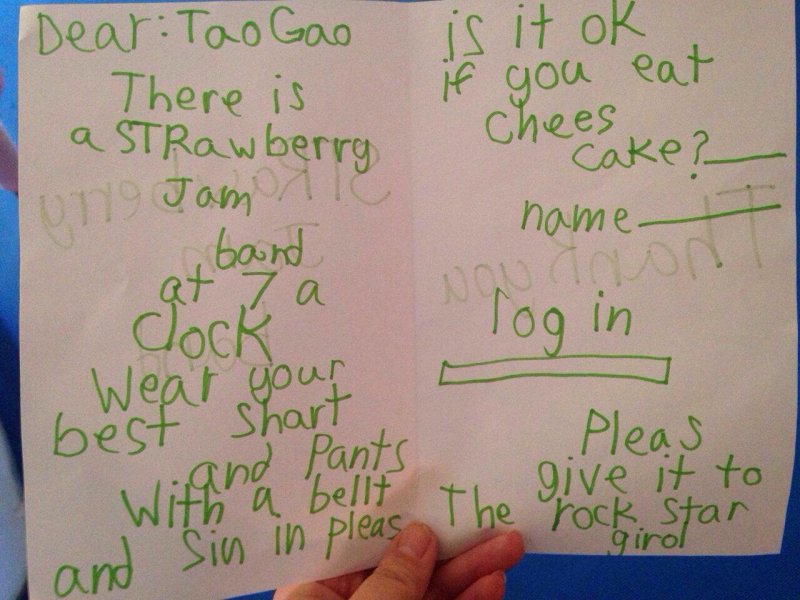 Dear: Tao Gao
There is
a STRawberry
Jam
band
at 7 a
Clock
Wear your
best shart
and Pants
With a bellt
and Sin in pleas
is it ok
if you eat
chees
cake?
name
log in
Pleas
give it to
The rock star
girol
STRawberry
Jam
band
Thank you